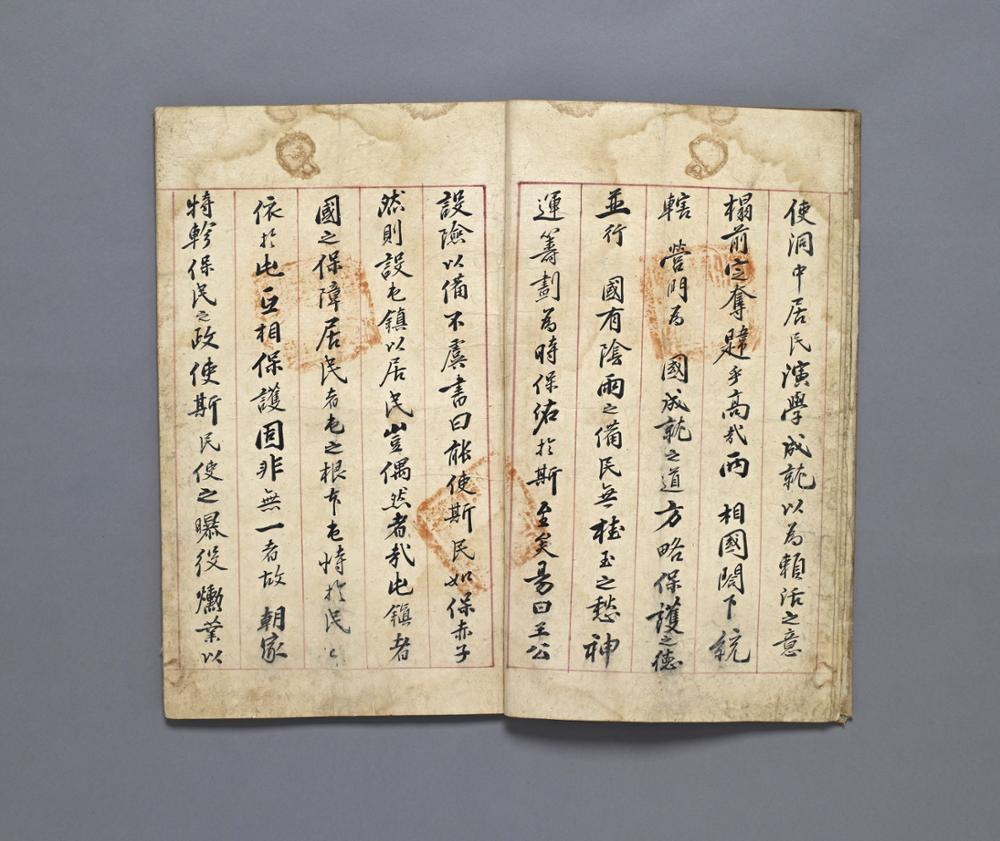 使洞中居民演學成就以為賴活之意
榻前定奪韙乎高哉兩 相國閤下統
轄 營門為 國成就之道方略保護之德
並行 國有陰雨之備民無桂玉之愁神
運籌劃為時保佑於斯至矣易曰王公
設險以備不虞書曰能使斯民如保赤子
然則設屯鎮以居民豈偶然者哉屯鎮者
國之保障居民者屯之根本屯恃於民民
依於屯互相保護固非無一者故 朝家
特軫保民之政使斯民使之曝役㷫業以